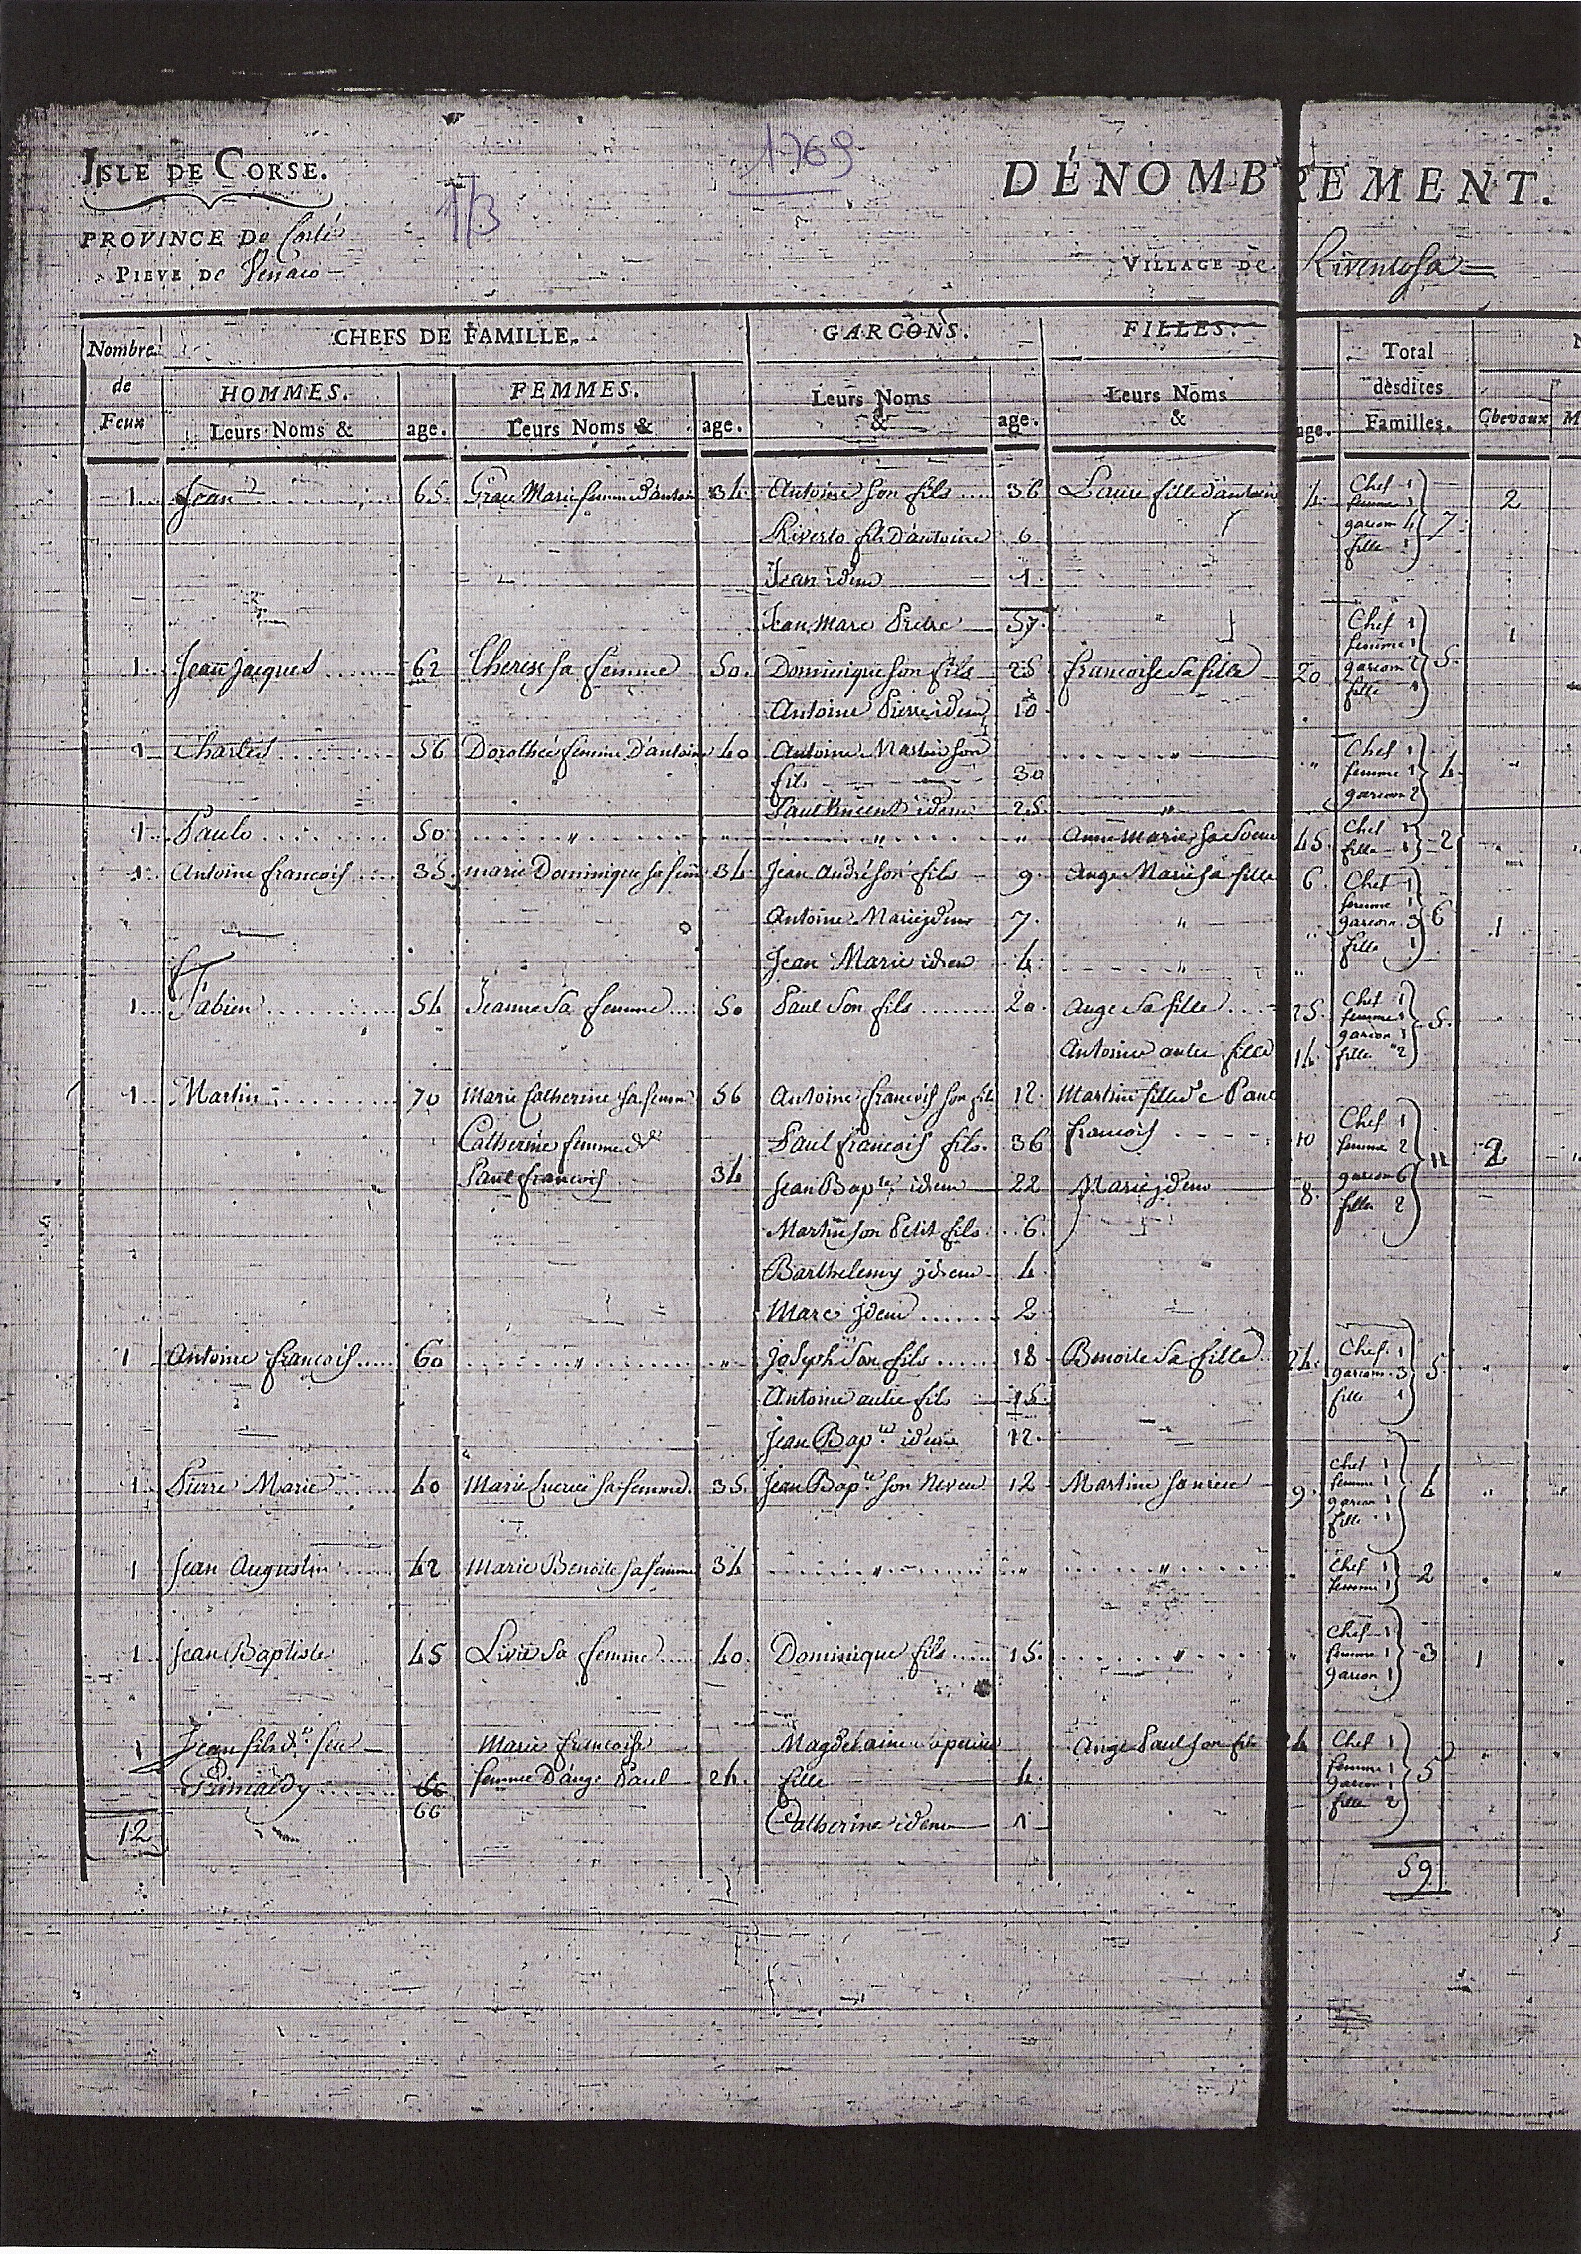 1769
1/3
ISLE DE CORSE.
DÉNOMBREMENT.
PROVINCE De Corté
PIEVE DE Venaco
VILLAGE DE Riventosa
Nombre de Feux
CHEFS DE FAMILLE.
GARCONS.
FILLES.
Total desdites Familles.
HOMMES. Leurs Noms & age.
FEMMES. Leurs Noms & age.
Leurs Noms & age.
Leurs Noms & age.
Chevaux
1 Jean 65 Grace Marie femme d'antoine 34 Antoine son fils 36 Laure fille d'antoine 4 Chef 1 femme 1 garcon 4 fille 1 7 2
fils d'antoine 6
Jean idem 1
Jean Marc Prêtre 57
1 Jean Jacques 62 Therese sa femme 50 Dominique son fils 25 francoise sa fille 20 Chef 1 femme 1 garcon 2 fille 1 5 1
Antoine Pierre idem 10
1 Charles 56 Dorothée femme D'antoine 40 Antoine Martin son Chef 1 femme 1 garcon 2 4
fils 30
Paul Vincent idem 25
1 Paulo 50 " " " " Anne marie sa soeur 45 Chef 1 fille 1 2
1 Antoine francois 35 marie Dominique sa fem 34 Jean André son fils 9 Ange Marie sa fille 6 Chef 1 femme 1 garcon 3 fille 1 6 1
Antoine Marie jdem 7
Jean Marie idem 4
1 Fabien 54 Jeanne sa femme 50 Paul son fils 20 Ange sa fille 25 Chef 1 femme 1 garcon 1 fille 2 5
Antoine autre fille 14
1 Martin 70 Marie Catherine sa femme 56 Antoine francois son fils 12 Martine fille de Paul Chef 1 femme 2 garcon 6 fille 2 11 2
Catherine femme de Paul francois fils 36 francois 10
Paul francois 34 Jean Bap.te idem 22 Marie jdem 8
Martin son Petit fils 6
Barthelemy jdem 4
Marc jdem 2
1 Antoine francois 60 " " Joseph son fils 18 Benoite sa fille 24 Chef 1 garcon 3 fille 1 5
Antoine autre fils 15
Jean Bap.te idem 12
1 Pierre Marie 40 Marie Lucrece sa femme 35 Jean Bap.te son Neveu 12 Martine sa niece 9 Chef 1 femme 1 garcon 1 fille 1 4
1 Jean Augustin 42 Marie Benoite sa femme 34 " " " Chef 1 femme 1 2
1 Jean Baptiste 45 Livie sa femme 40 Dominique fils 15 " Chef 1 femme 1 garcon 1 3 1
1 Jean fils de feu Marie francoise Magdelaine Ange Paul son fils 24 Chef 1 femme 1 garcon 1 fille 2 5
66 femme D'ange Paul 24 fille 4
66 Catherine idem 1
12
59